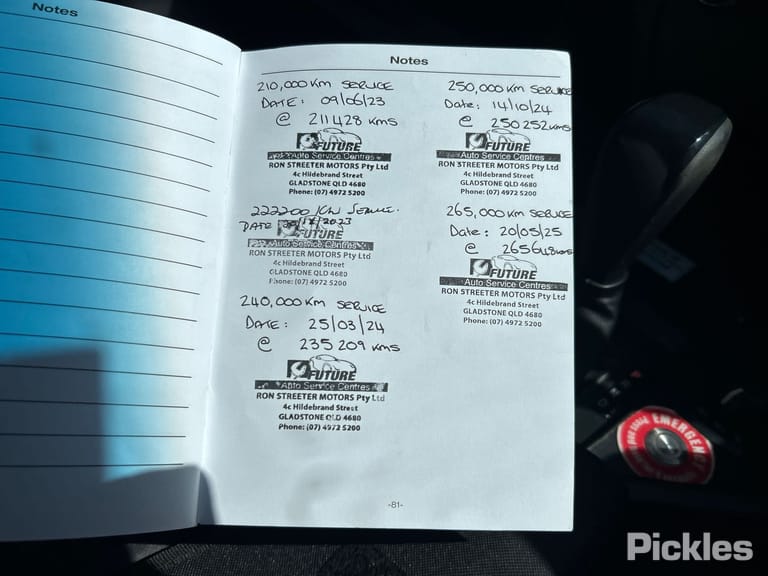 Notes
Notes
210,000 Km SERVICE
DATE: 09/06/23
@ 211428 KMS
FUTURE
Auto Service Centres
RON STREETER MOTORS Pty Ltd
4c Hildebrand Street
GLADSTONE QLD 4680
Phone: (07) 4972 5200
222200 Km SERVICE.
DATE /2023
FUTURE
Auto Service Centres
RON STREETER MOTORS Pty Ltd
4c Hildebrand Street
GLADSTONE QLD 4680
Phone: (07) 4972 5200
240,000 Km SERVICE
DATE: 25/03/24
@ 235 209 KMS
FUTURE
Auto Service Centres
RON STREETER MOTORS Pty Ltd
4c Hildebrand Street
GLADSTONE QLD 4680
Phone: (07) 4972 5200
250,000 Km SERVICE
Date: 14/10/24
@ 250 252 KMS
FUTURE
Auto Service Centres
RON STREETER MOTORS Pty Ltd
4c Hildebrand Street
GLADSTONE QLD 4680
Phone: (07) 4972 5200
265,000 Km SERVICE
Date: 20/05/25
@ 265648 KMS
FUTURE
Auto Service Centres
RON STREETER MOTORS Pty Ltd
4c Hildebrand Street
GLADSTONE QLD 4680
Phone: (07) 4972 5200
-81-
EMERGENCY
Pickles